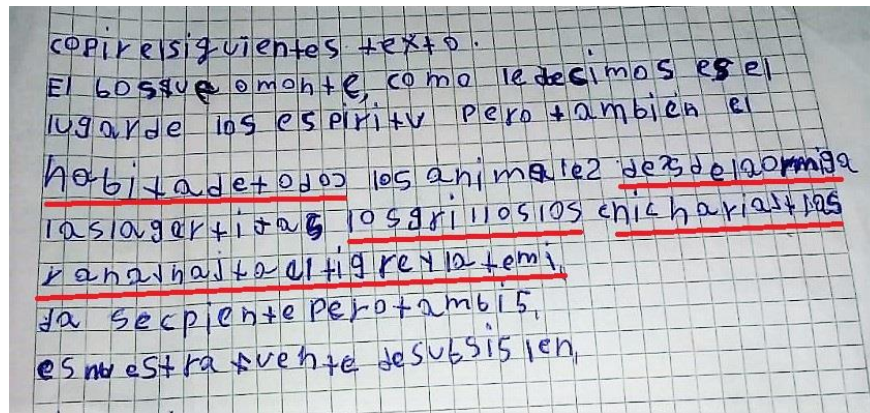 copirelsiguientes texto.
El bosque omonte, como ledecimos es el
lugarde los espiritu pero tambien el
habitadetodo los animalez dezsdelaormiga
laslagartijas losgrilloslos chichariastlas
ranashastaaltigreylatemi,
da secpientepero tambis,
es nuestra fuente desubsisien,